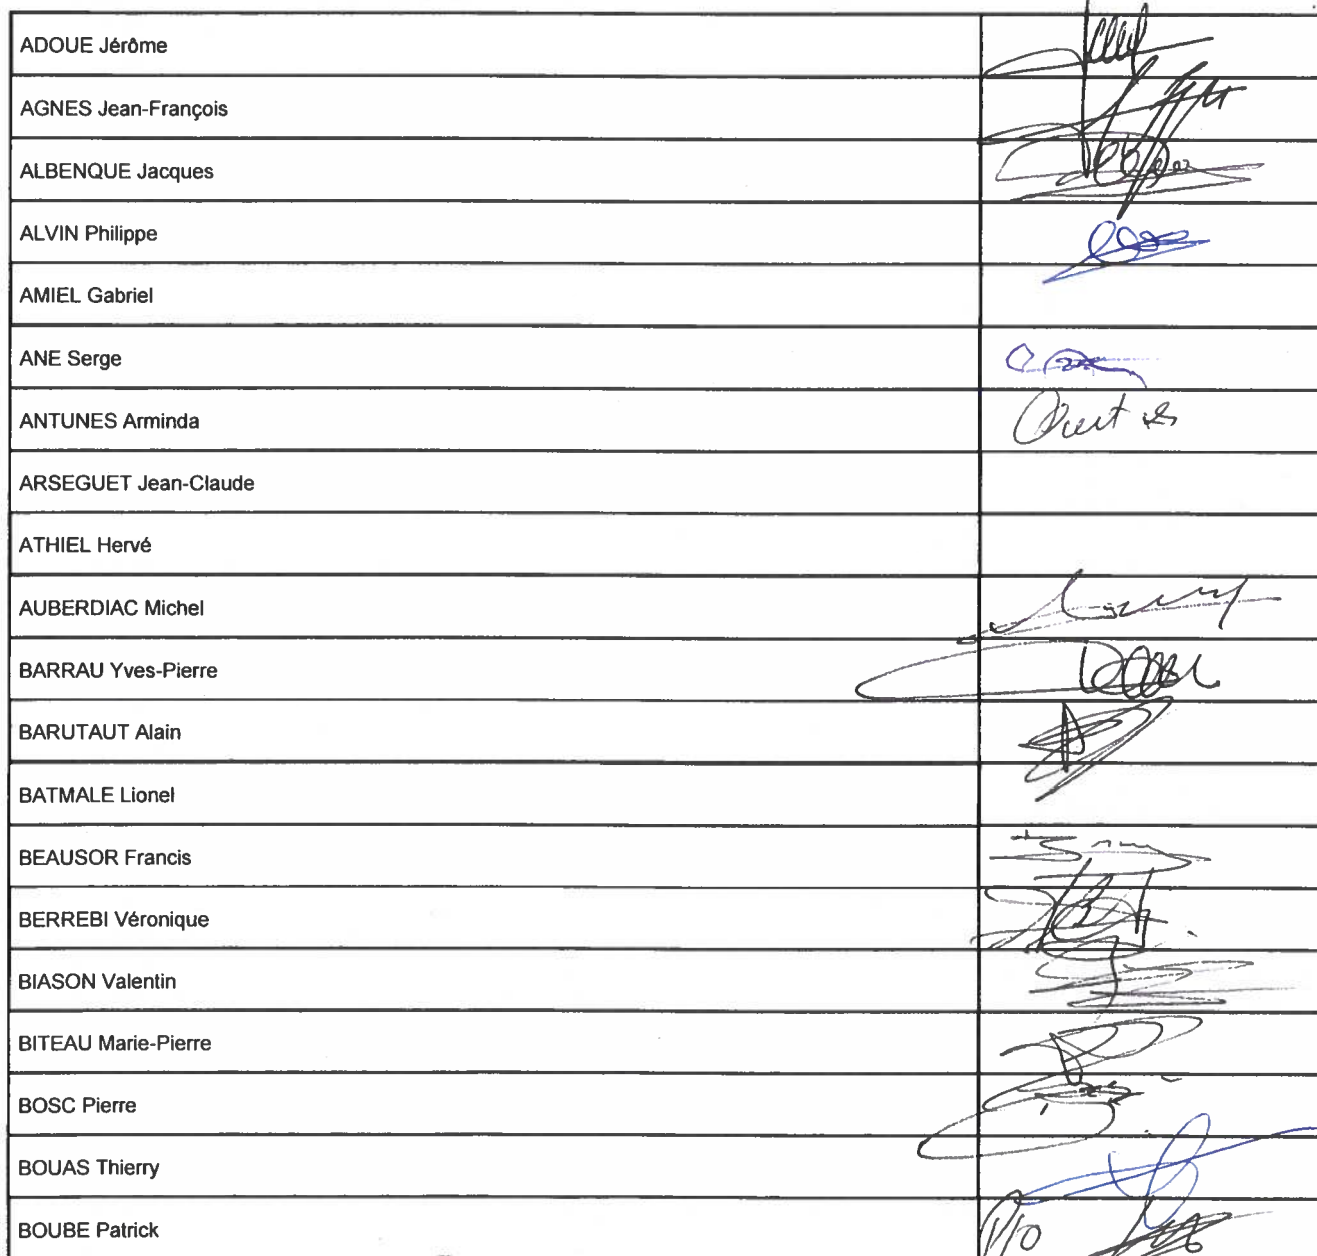 ADOUE Jérôme
AGNES Jean-François
ALBENQUE Jacques
ALVIN Philippe
AMIEL Gabriel
ANE Serge
ANTUNES Arminda
ARSEGUET Jean-Claude
ATHIEL Hervé
AUBERDIAC Michel
BARRAU Yves-Pierre
BARUTAUT Alain
BATMALE Lionel
BEAUSOR Francis
BERREBI Véronique
BIASON Valentin
BITEAU Marie-Pierre
BOSC Pierre
BOUAS Thierry
BOUBE Patrick P/O